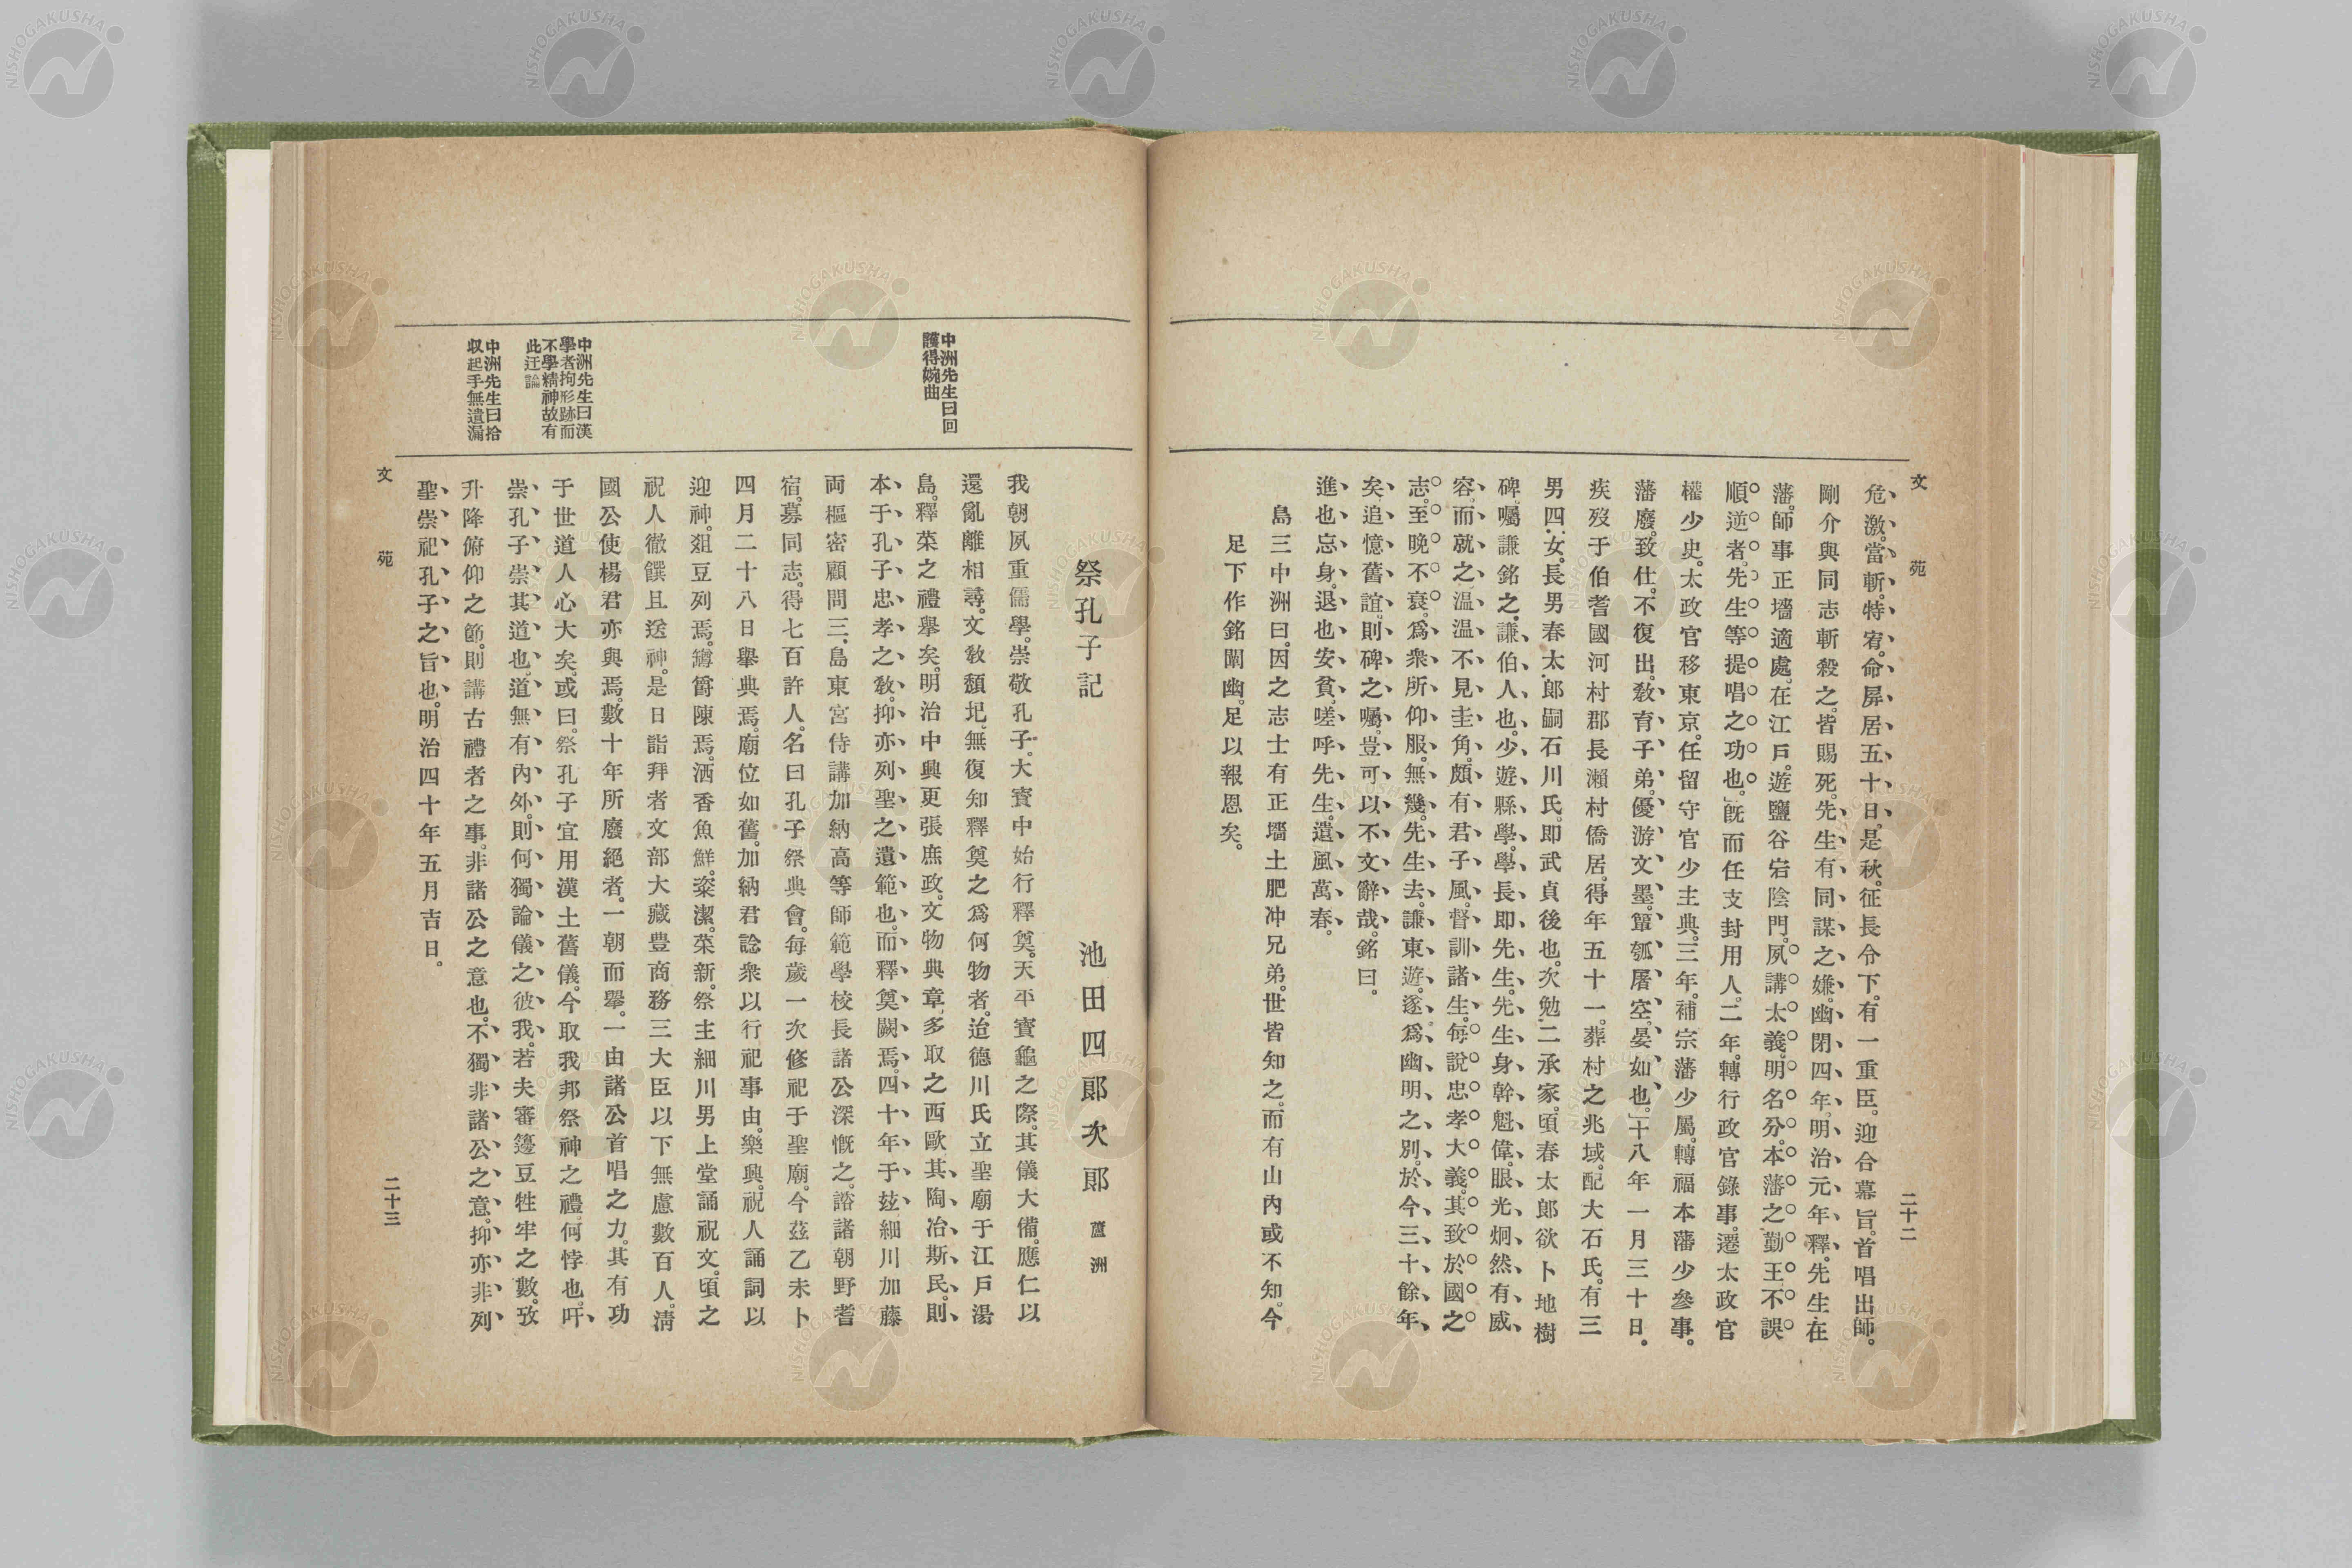 文苑
二十二
危激。當斬。特宥。命屏居五十日。是秋。征長令下。有一重臣。迎合幕旨。首唱出師。
剛介與同志斬殺之。皆賜死。先生有同謀之嫌。幽閉四年。明治元年。釋。先生在
藩。師事正墻適處。在江戶。遊鹽谷宕陰門。夙講大義。明名分。本藩之勤王。不誤
順逆者。先生等提唱之功也。」既而任支封用人。二年。轉行政官錄事。遷太政官
權少史。太政官移東京。任留守官少主典。三年。補宗藩少屬。轉福本藩少參事。
藩廢。致仕。不復出。敎育子弟。優游文墨。簞瓠屠空。晏如也。」十八年一月三十日。
疾歿于伯耆國河村郡長瀨村僑居。得年五十一。葬村之兆域。配大石氏。有三
男四女。長男春太郞嗣石川氏。卽武貞後也。次勉二承家。頃春太郞欲卜地樹
碑。囑謙銘之。謙伯人也。少遊縣學。學長卽先生。先生身幹魁偉。眼光炯然有威
容。而就之溫溫不見圭角。頗有君子風。督訓諸生。每說忠孝大義。其致於國之
志。至晚不衰。爲衆所仰服。無幾。先生去。謙東遊。遂爲幽明之別。於今三十餘年
矣。追憶舊誼。則碑之囑。豈可以不文辭哉。銘曰。
進也忘身。退也安貧。嗟呼先生。遺風萬春。
島三中洲曰。因之志士有正墻土肥冲兄弟。世皆知之。而有山內或不知。今
足下作銘闡幽。足以報恩矣。
祭孔子記
池田四郞次郞 蘆洲
我朝夙重儒學。崇敬孔子。大寶中始行釋奠。天平寶龜之際。其儀大備。應仁以
還亂離相尋。文敎頽圮。無復知釋奠之爲何物者。迨德川氏立聖廟于江戶湯
島。釋菜之禮擧矣。明治中興更張庶政。文物典章。多取之西歐。其陶冶斯民。則
本于孔子忠孝之敎。抑亦列聖之遺範也。而釋奠闕焉。四十年于玆。細川加藤
両樞密顧問三島東宮侍講加納高等師範學校長諸公深慨之。諮諸朝野耆
宿。募同志。得七百許人。名曰孔子祭典會。每歲一次修祀于聖廟。今玆乙未卜
四月二十八日擧典焉。廟位如舊。加納君諗衆以行祀事由。樂興。祝人誦詞以
迎神。爼豆列焉。罇爵陳焉。洒香魚鮮。粢潔。菜新。祭主細川男上堂誦祝文。頃之
祝人徹饌且送神。是日詣拜者文部大藏豊商務三大臣以下無慮數百人。淸
國公使楊君亦與焉。數十年所廢絕者。一朝而擧。一由諸公首唱之力。其有功
于世道人心大矣。或曰。祭孔子宜用漢土舊儀。今取我邦祭神之禮。何悖也。吁
崇孔子。崇其道也。道無有內外。則何獨論儀之彼我。若夫審籩豆牲牢之數。攷
升降俯仰之節。則講古禮者之事。非諸公之意也。不獨非諸公之意。抑亦非列
聖崇祀孔子之旨也。明治四十年五月吉日。
中洲先生曰回
護得婉曲
中洲先生曰漢
學者拘形跡而
不學精神故有
此迂論
中洲先生曰拾
収起手無遺漏
文苑
二十三
NISHOGAKUSHA